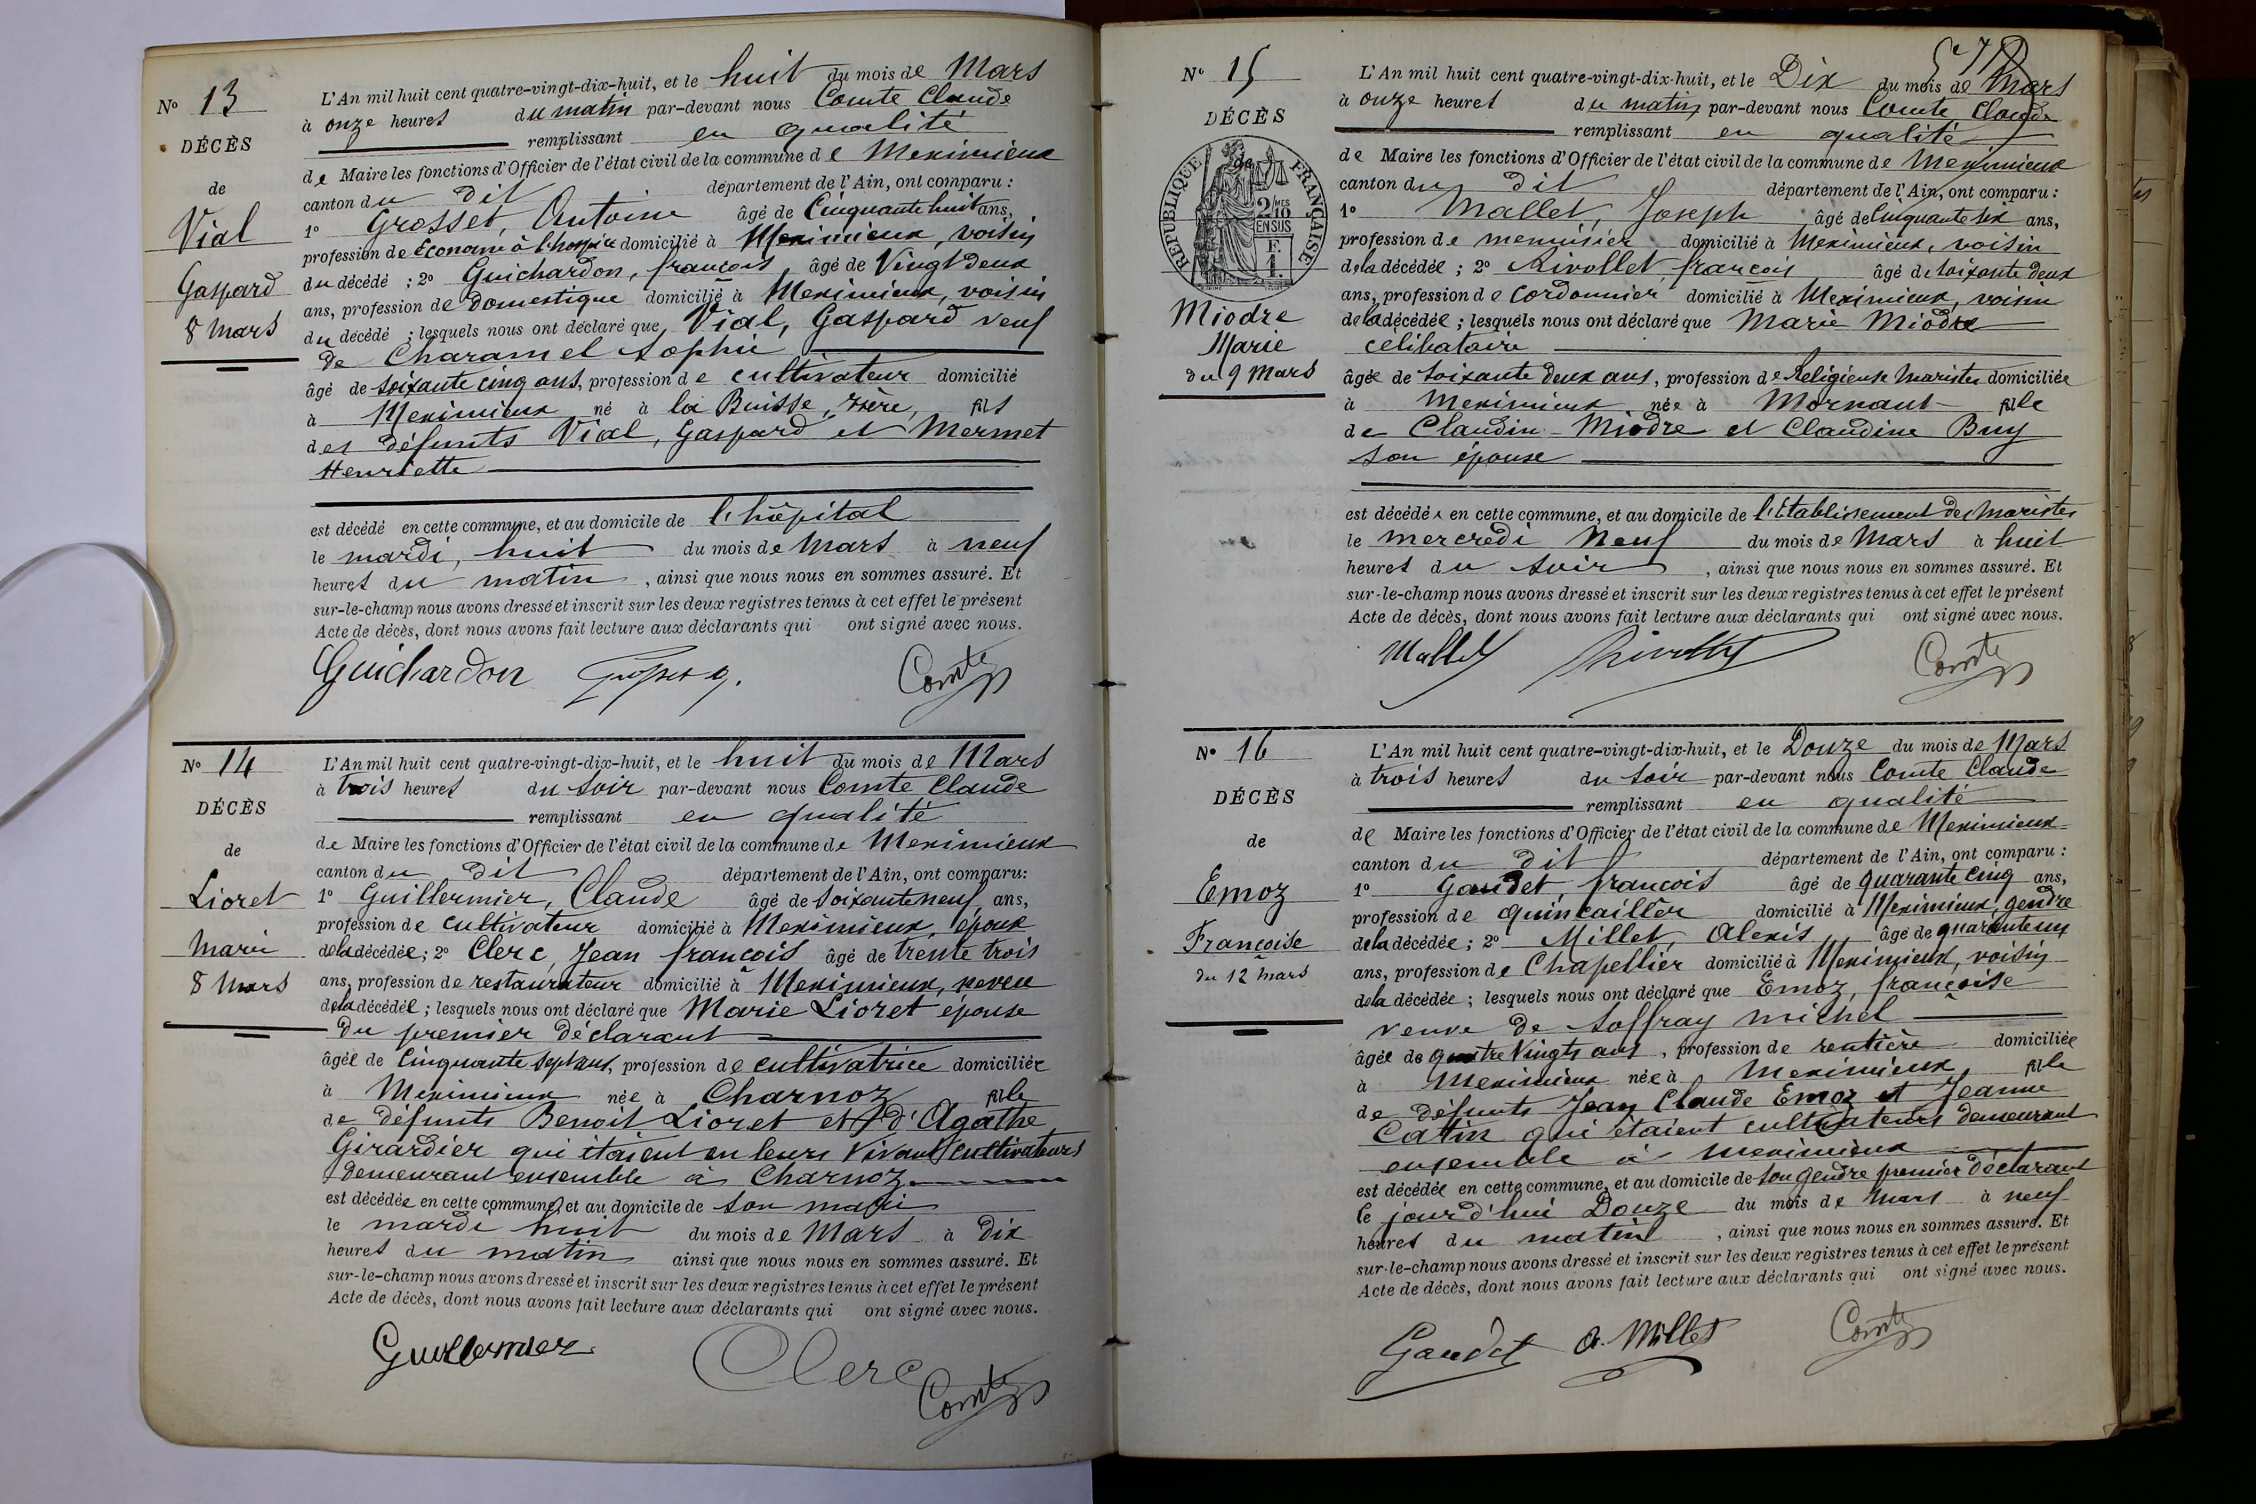 Nº 13
DÉCÈS
de
Vial
Gaspard
8 Mars
L'An mil huit cent quatre-vingt-dix-huit, et le huit du mois de Mars
à onze heures du matin par-devant nous Comte Claude
remplissant en qualité
de Maire les fonctions d'Officier de l'état civil de la commune de Meximieux
canton du dit département de l'Ain, ont comparu :
1º Grosset, Antoine âgé de Cinquante huit ans,
profession de Econome à l'hospice domicilié à Meximieux, voisin
du décédé ; 2º Guichardon, françois, âgé de Vingt deux
ans, profession de domestique domicilié à Meximieux, voisin
du décédé ; lesquels nous ont déclaré que Vial, Gaspard veuf
de Charamel Sophie
âgé de soixante cinq ans, profession de cultivateur domicilié
à Meximieux né à la Buisse, Isère, fils
des défunts Vial, Gaspard et Mermet
Henriette
est décédé en cette commune, et au domicile de l'hôpital
le mardi, huit du mois de Mars à neuf
heures du matin, ainsi que nous nous en sommes assuré. Et
sur-le-champ nous avons dressé et inscrit sur les deux registres tenus à cet effet le présent
Acte de décès, dont nous avons fait lecture aux déclarants qui ont signé avec nous.
Guichardon Grosset a. Comte
Nº 14
DÉCÈS
de
Lioret
Marie
8 Mars
L'An mil huit cent quatre-vingt-dix-huit, et le huit du mois de Mars
à trois heures du soir par-devant nous Comte Claude
remplissant en qualité
de Maire les fonctions d'Officier de l'état civil de la commune de Meximieux
canton du dit département de l'Ain, ont comparu :
1º Guillermier, Claude âgé de soixante neuf ans,
profession de cultivateur domicilié à Meximieux, époux
de la décédée ; 2º Clerc, Jean françois âgé de trente trois
ans, profession de restaurateur domicilié à Meximieux, neveu
de la décédée ; lesquels nous ont déclaré que Marie Lioret épouse
du premier déclarant
âgée de Cinquante sept ans, profession de cultivatrice domiciliée
à Meximieux née à Charnoz fille
de défunts Benoit Lioret et d'Agathe
Girardier qui étaient en leurs vivant cultivateurs
demeurant ensemble à Charnoz
est décédée en cette commune, et au domicile de son mari
le mardi huit du mois de Mars à Dix
heures du matin ainsi que nous nous en sommes assuré. Et
sur-le-champ nous avons dressé et inscrit sur les deux registres tenus à cet effet le présent
Acte de décès, dont nous avons fait lecture aux déclarants qui ont signé avec nous.
Guillermier Clerc Comte
Nº 15
DÉCÈS
de
RÉPUBLIQUE FRANÇAISE
2/10 MES
EN SUS
F.
1.
Miodre
Marie
du 9 Mars
L'An mil huit cent quatre-vingt-dix-huit, et le Dix du mois de Mars
à onze heures du matin par-devant nous Comte Claude
remplissant en qualité
de Maire les fonctions d'Officier de l'état civil de la commune de Meximieux
canton du dit département de l'Ain, ont comparu :
1º Mallet, Joseph âgé de Cinquante six ans,
profession de menuisier domicilié à Meximieux, voisin
de la décédée ; 2º Rivollet, françois âgé de soixante deux
ans, profession de Cordonnier domicilié à Meximieux, voisin
de la décédée ; lesquels nous ont déclaré que Marie Miodre
celibataire
âgée de soixante deux ans, profession de Religieuse Mariste domiciliée
à Meximieux née à Mornant fille
de Claudin Miodre et Claudine Buy
son épouse
est décédée en cette commune, et au domicile de l'Etablissement des Maristes
le mercredi Neuf du mois de Mars à huit
heures du soir, ainsi que nous nous en sommes assuré. Et
sur-le-champ nous avons dressé et inscrit sur les deux registres tenus à cet effet le présent
Acte de décès, dont nous avons fait lecture aux déclarants qui ont signé avec nous.
Mallet Rivollet Comte
Nº 16
DÉCÈS
de
Emoz
Françoise
du 12 Mars
L'An mil huit cent quatre-vingt-dix-huit, et le Douze du mois de Mars
à trois heures du soir par-devant nous Comte Claude
remplissant en qualité
de Maire les fonctions d'Officier de l'état civil de la commune de Meximieux
canton du dit département de l'Ain, ont comparu :
1º Gaudet, françois âgé de quarante cinq ans,
profession de quincailler domicilié à Meximieux, gendre
de la décédée ; 2º Millet, Alexis, âgé de quarante un
ans, profession de Chapellier domicilié à Meximieux, voisin
de la décédée ; lesquels nous ont déclaré que Emoz, françoise
veuve de Soffray Michel
âgée de quatre Vingts ans, profession de rentière domiciliée
à Meximieux née à Meximieux fille
de défunts Jean Claude Emoz et Jeanne
Catin qui étaient cultivateurs demeurant
ensemble à Meximieux
est décédée en cette commune, et au domicile de son gendre premier déclarant
le jour d'hui Douze du mois de Mars à neuf
heures du matin, ainsi que nous nous en sommes assuré. Et
sur-le-champ nous avons dressé et inscrit sur les deux registres tenus à cet effet le présent
Acte de décès, dont nous avons fait lecture aux déclarants qui ont signé avec nous.
Gaudet A. Millet Comte